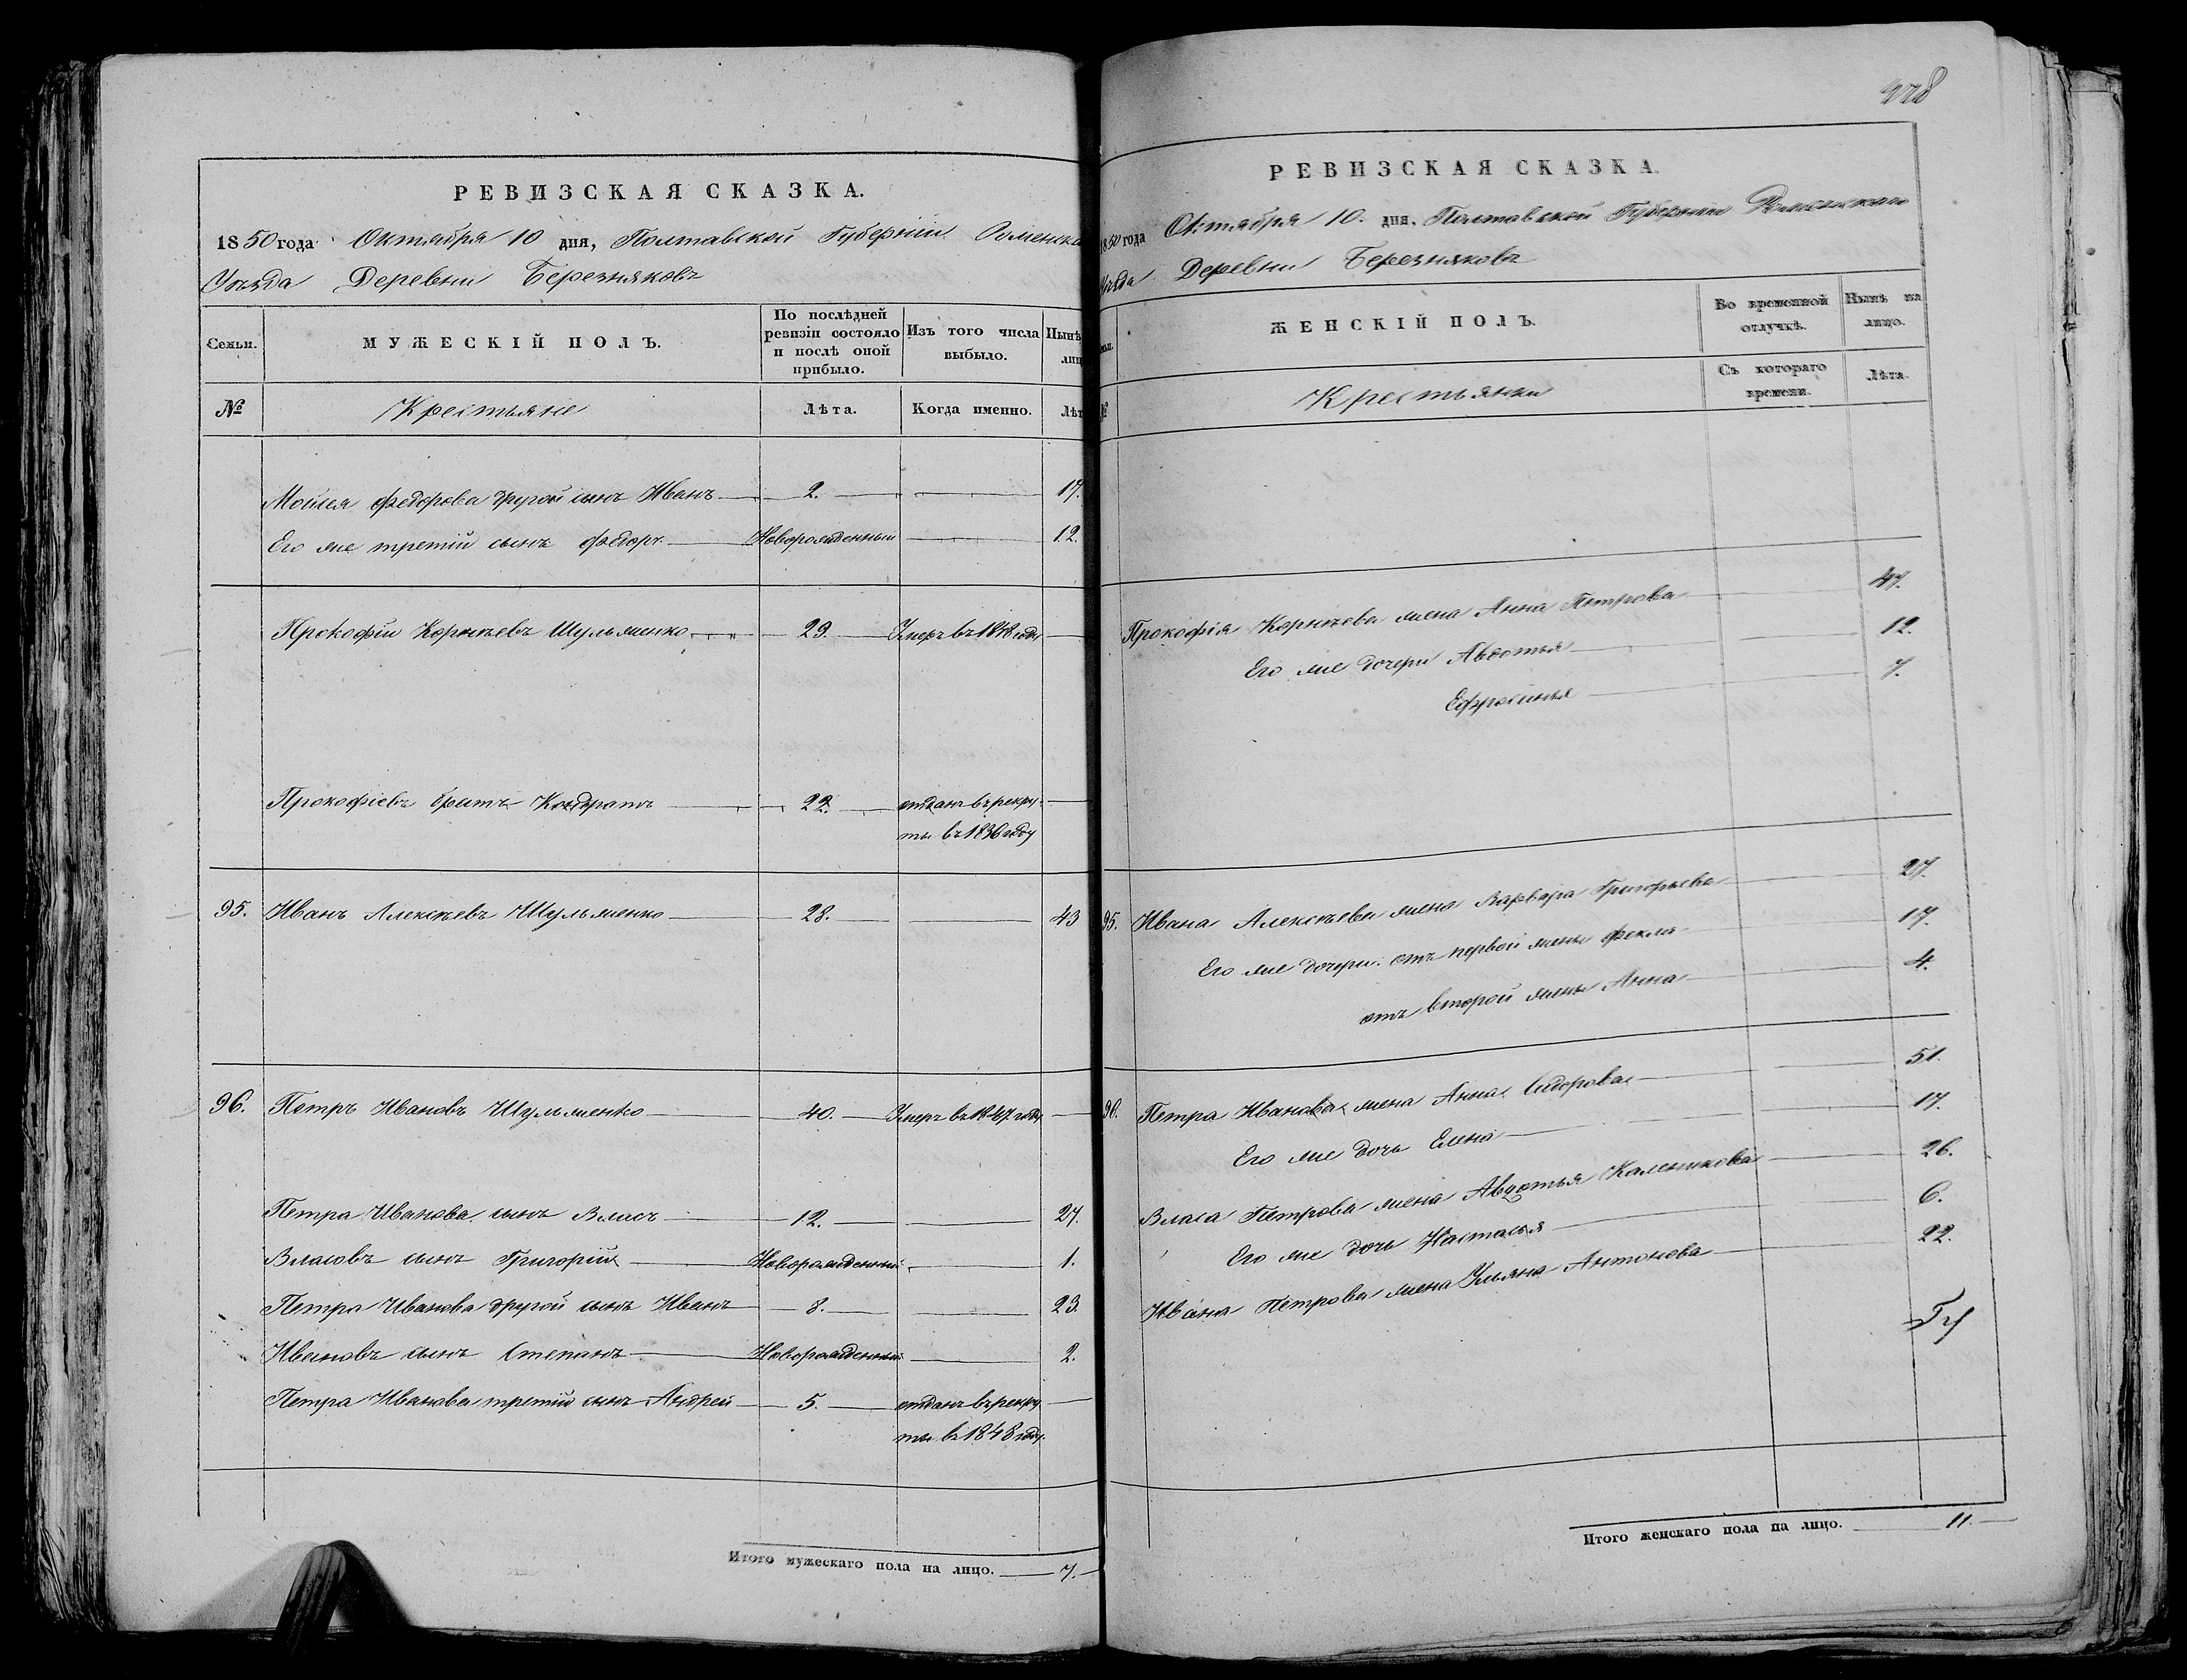 РЕВИЗСКАЯ СКАЗКА.
1850 года Октября 10 дня, Полтавской Губерніи Роменска
Уѣзда Деревни Березняковъ
Семьи.
МУЖЕСКІЙ ПОЛЪ.
По послѣдней
ревизіи состояло
и послѣ оной
прибыло.
Изъ того числа
выбыло.
Нынѣ
лиц
№
Крестьяне
Лѣта.
Когда именно.
Лѣт
Мойсея Федорова другой сынъ Иванъ 2. 17.
Его же третій сынъ Федоръ Новорожденный 12.
Прокофій Корнѣевъ Шульменко 29. Умеръ въ 1848 году
Прокофіевъ братъ Кондратъ 22. отданъ въ рекру-
ты въ 1836 году
95. Иванъ Алексѣевъ Шульменко 28. 43
96. Петръ Ивановъ Шульменко 40. Умеръ въ 1847 году
Петра Иванова сынъ Власъ 12. 27.
Власовъ сынъ Григорій Новорожденный 1.
Петра Иванова другой сынъ Иванъ 8. 23.
Ивановъ сынъ Степанъ Новорожденный 2.
Петра Иванова третій сынъ Андрей 5. отданъ въ рекру
ты въ 1848 году.
Итого мужескаго пола на лицо. 7.
РЕВИЗСКАЯ СКАЗКА.
1850 года Октября 10. дня, Полтавской Губерніи Роменскаго
Уѣзда Деревни Березняковъ
ЖЕНСКІЙ ПОЛЪ.
Во временной
отлучкѣ.
Нынѣ на
лицо.
№
Крестьянки
Съ котораго
времени.
Лѣта.
Прокофія Корнѣева жена Анна Петрова 47.
Его же дочери Авдотья 12.
Ефросинья 7.
95. Ивана Алексѣева жена Варвара Григорьева 27.
Его же дочери отъ первой жены Фекла 17.
отъ второй жены Анна 4.
96. Петра Иванова жена Анна Сидорова 51.
Его же дочь Елена 17.
Власа Петрова жена Авдотья 26.
Его же дочь Настасья 6.
Ивана Петрова жена Ульяна Антонова 22.
Итого женскаго пола на лицо. 11.